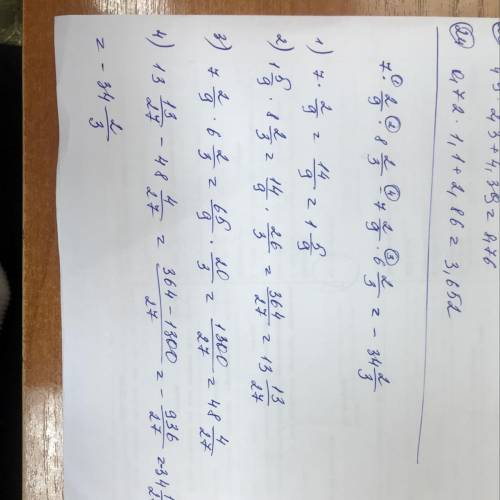 4,5 · 2,3 + 4,38 = 8476
24 0,72 · 1,1 + 2,86 = 3,652
7 · 2/9 · 8 2/3 - 7 2/9 · 6 2/3 = - 34 2/3
1) 7 · 2/9 = 14/9 = 1 5/9
2) 1 5/9 · 8 2/3 = 14/9 · 26/3 = 364/27 = 13 13/27
3) 7 2/9 · 6 2/3 = 65/9 · 20/3 = 1300/27 = 48 4/27
4) 13 13/27 - 48 4/27 = 364-1300/27 = - 936/27 = 34
= - 34 2/3